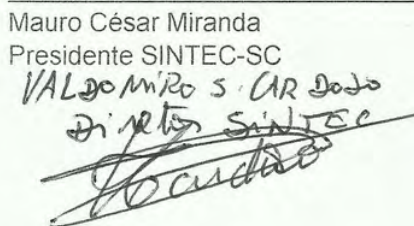 Mauro César Miranda
Presidente SINTEC-SC
VALDOMIRO S. CARDOSO
Diretor SINTEC
Cardoso